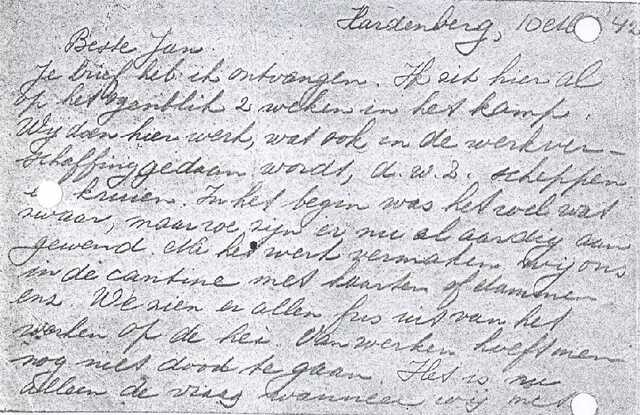 Hardenberg, 1 Octb 42
Beste Jan.
Je brief heb ik ontvangen. Ik zit hier al
op het ogenblik 2 weken in het kamp.
Wij doen hier werk, wat ook in de werkver-
schaffing gedaan wordt, d.w.z. scheppen
kruien. In het begin was het wel wat
zwaar, maar we zijn er nu al aardig aan
gewend. Na het werk vermaken wij ons
in de cantine met kaarten of dammen
enz. We zien er allen fris uit van het
werken op de hei. Van werken hoeft men
nog niet dood te gaan. Het is nu
alleen de vraag wanneer wij met